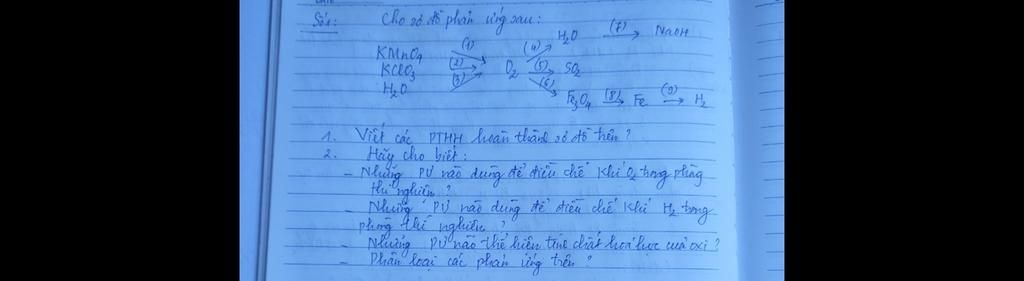 Số 1: Cho sơ đồ phản ứng sau:
KMnO4 (1)
KClO3 (2) O2 (4) H2O (7) NaOH
H2O (3) (5) SO2
(6) Fe3O4 (8) Fe (9) H2
1. Viết các PTHH hoàn thành sơ đồ trên?
2. Hãy cho biết:
- Những PƯ nào dùng để điều chế khí O2 trong phòng
thí nghiệm?
- Những PƯ nào dùng để điều chế khí H2 trong
phòng thí nghiệm?
- Những PƯ nào thể hiện tính chất hoá học của oxi?
- Phân loại các phản ứng trên?